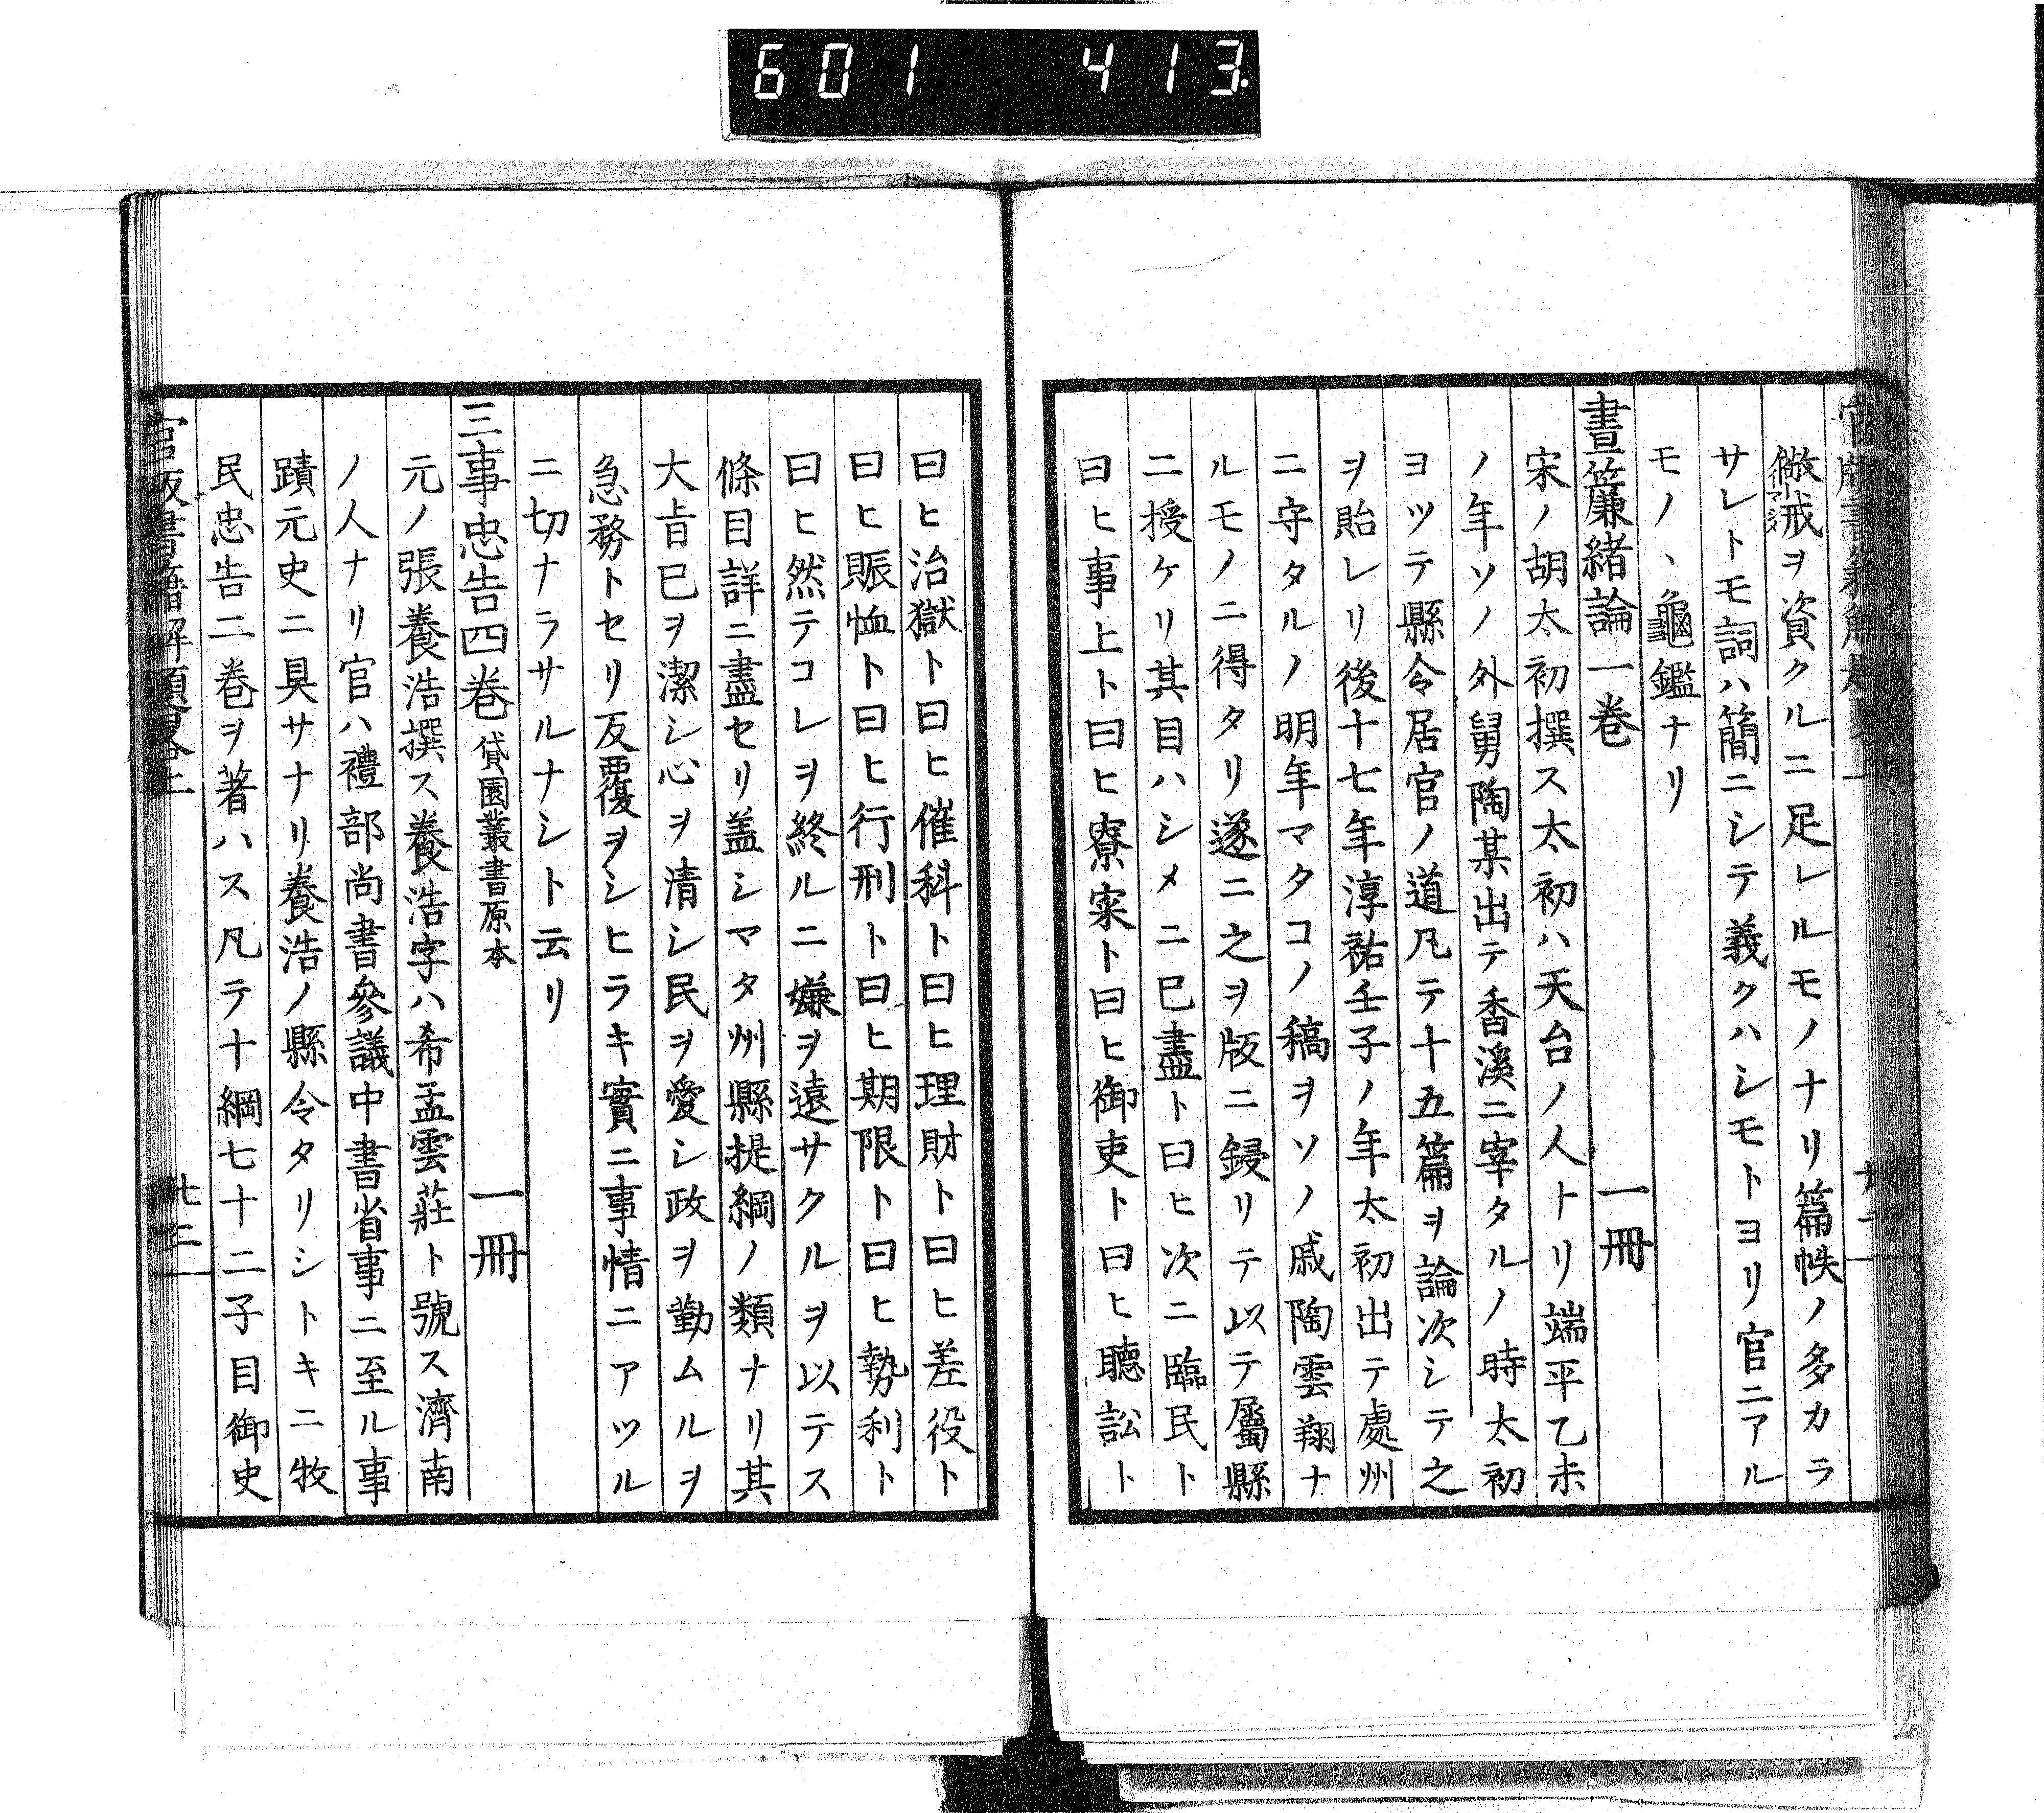 601 413.
儆戒ヲ資クルニ足レルモノナリ篇帙ノ多カラ
サレトモ詞ハ簡ニシテ義クハシモトヨリ官ニアル
モノヽ龜鑑ナリ
晝簾緒論一巻 一冊
宋ノ胡太初撰ス太初ハ天台ノ人トリ端平乙未
ノ年ソノ外舅陶某出テ香溪ニ宰タルノ時太初
ヨツテ縣令居官ノ道凡テ十五篇ヲ論次シテ之
ヲ貽レリ後十七年淳祐壬子ノ年太初出テ處州
ニ守タルノ明年マタコノ稿ヲソノ戚陶雲翔ナ
ルモノニ得タリ遂ニ之ヲ版ニ鋟リテ以テ屬縣
ニ授ケリ其目ハシメニ已盡ト曰ヒ次ニ臨民ト
曰ヒ事上ト曰ヒ寮寀ト曰ヒ御吏ト曰ヒ聽訟ト
曰ヒ治獄ト曰ヒ催科ト曰ヒ理財ト曰ヒ差役ト
曰ヒ賑恤ト曰ヒ行刑ト曰ヒ期限ト曰ヒ勢利ト
曰ヒ然テコレヲ終ルニ嫌ヲ遠サクルヲ以テス
條目詳ニ盡セリ盖シマタ州縣提綱ノ類ナリ其
大旨已ヲ潔シ心ヲ清シ民ヲ愛シ政ヲ勤ムルヲ
急務トセリ反覆ヲシヒラキ實ニ事情ニアツル
ニ切ナラサルナシト云リ
三事忠告四巻 貸園叢書原本 一冊
元ノ張養浩撰ス養浩字ハ希孟雲莊ト號ス濟南
ノ人ナリ官ハ禮部尚書參議中書省事ニ至ル事
蹟元史ニ具サナリ養浩ノ縣令タリシトキニ牧
民忠告二巻ヲ著ハス凡テ十綱七十二子目御史
官版書籍解題畧上 廿二